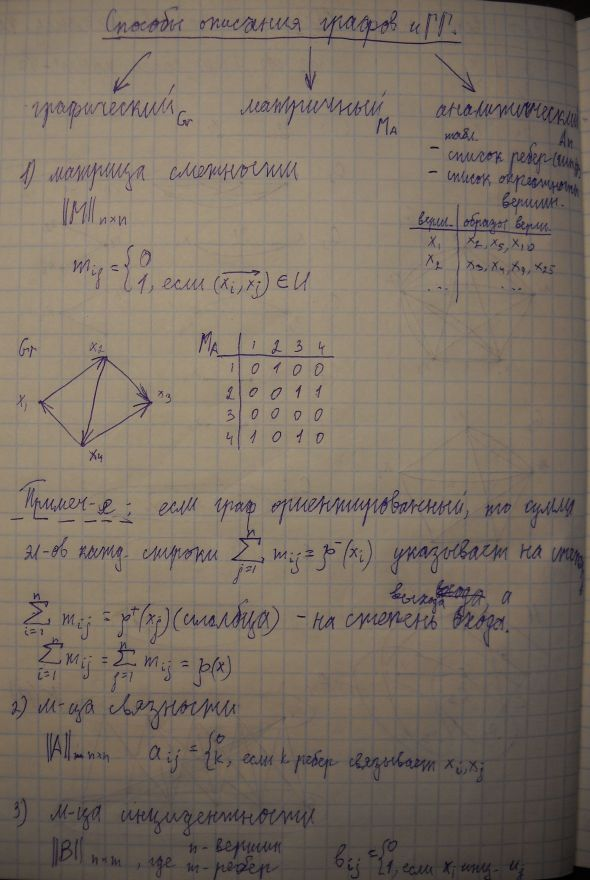 Способы описания графов и ГГ.
графический Gr матричный MA аналитический An
табл.
- список ребер
- список окрестность
вершин.
1) матрица смежности
||M|| n×n
верш. образы верш.
x1 x2, x5, x10
x2 x3, x4, x9, x25
... ...
mij = { 0
1, если (xi, xj) ∈ U
Gr x2 x1 x3 x4
MA 1 2 3 4
1 0 1 0 0
2 0 0 1 1
3 0 0 0 0
4 1 0 1 0
Примеч-е: если граф ориентированный, то сумма
эл-ов кажд. строки ∑ j=1 n mij = ρ⁻(xi) указывает на степ.
выхода, а
∑ i=1 n mij = ρ⁺(xj) (столбца) - на степень входа.
∑ i=1 n mij = ∑ j=1 n mij = ρ(x)
2) м-ца связности
||A|| n×n aij = { 0
k, если k ребер связывает xi, xj
3) м-ца инцидентности
||B|| n×m, где n - вершин
m - ребер
bij = { 0
1, если xi инц. uj